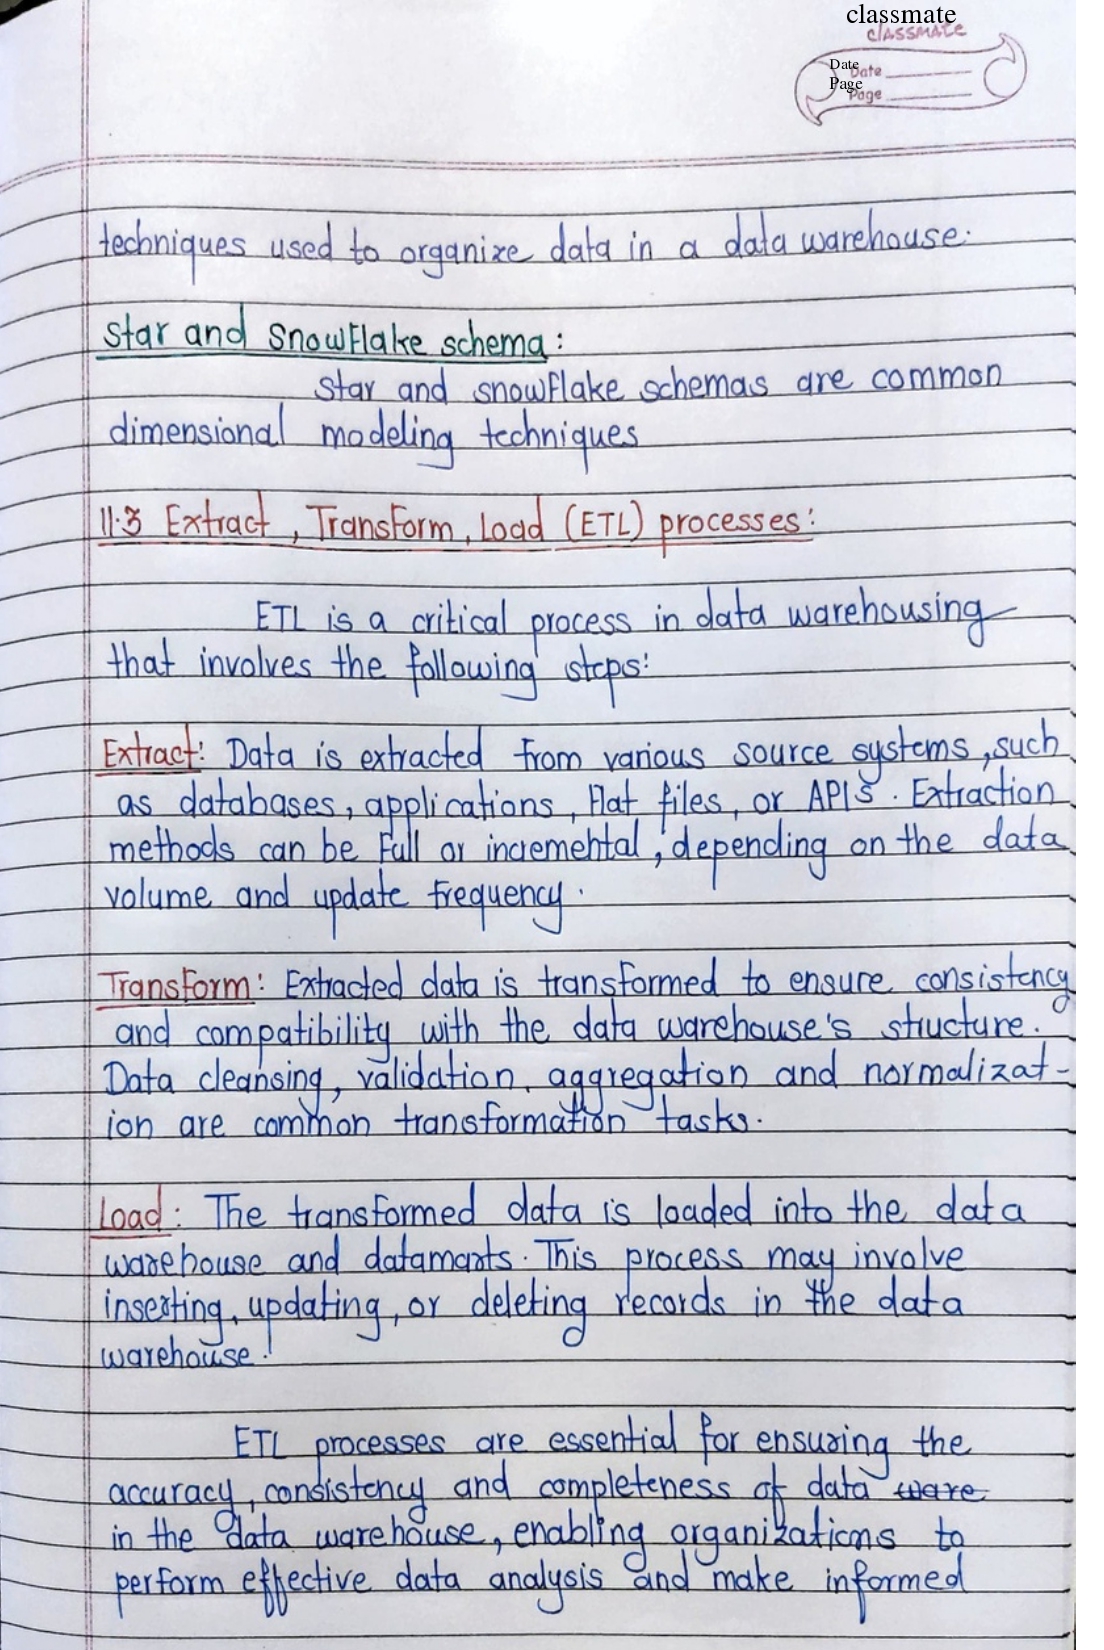 classmate
classmate
Date
Date
Page
Page
techniques used to organize data in a data warehouse.
Star and Snowflake schema:
Star and snowflake schemas are common
dimensional modeling techniques
11.3 Extract, Transform, Load (ETL) processes:
ETL is a critical process in data warehousing
that involves the following steps:
Extract: Data is extracted from various source systems, such
as databases, applications, flat files, or APIS. Extraction
methods can be full or incremental, depending on the data
volume and update frequency.
Transform: Extracted data is transformed to ensure consistency
and compatibility with the data warehouse's structure.
Data cleansing, validation, aggregation and normalizat-
ion are common transformation tasks.
Load: The transformed data is loaded into the data
warehouse and datamarts. This process may involve
inserting, updating, or deleting records in the data
warehouse.
ETL processes are essential for ensuring the
accuracy, consistency and completeness of data ware
in the data warehouse, enabling organizations to
perform effective data analysis and make informed